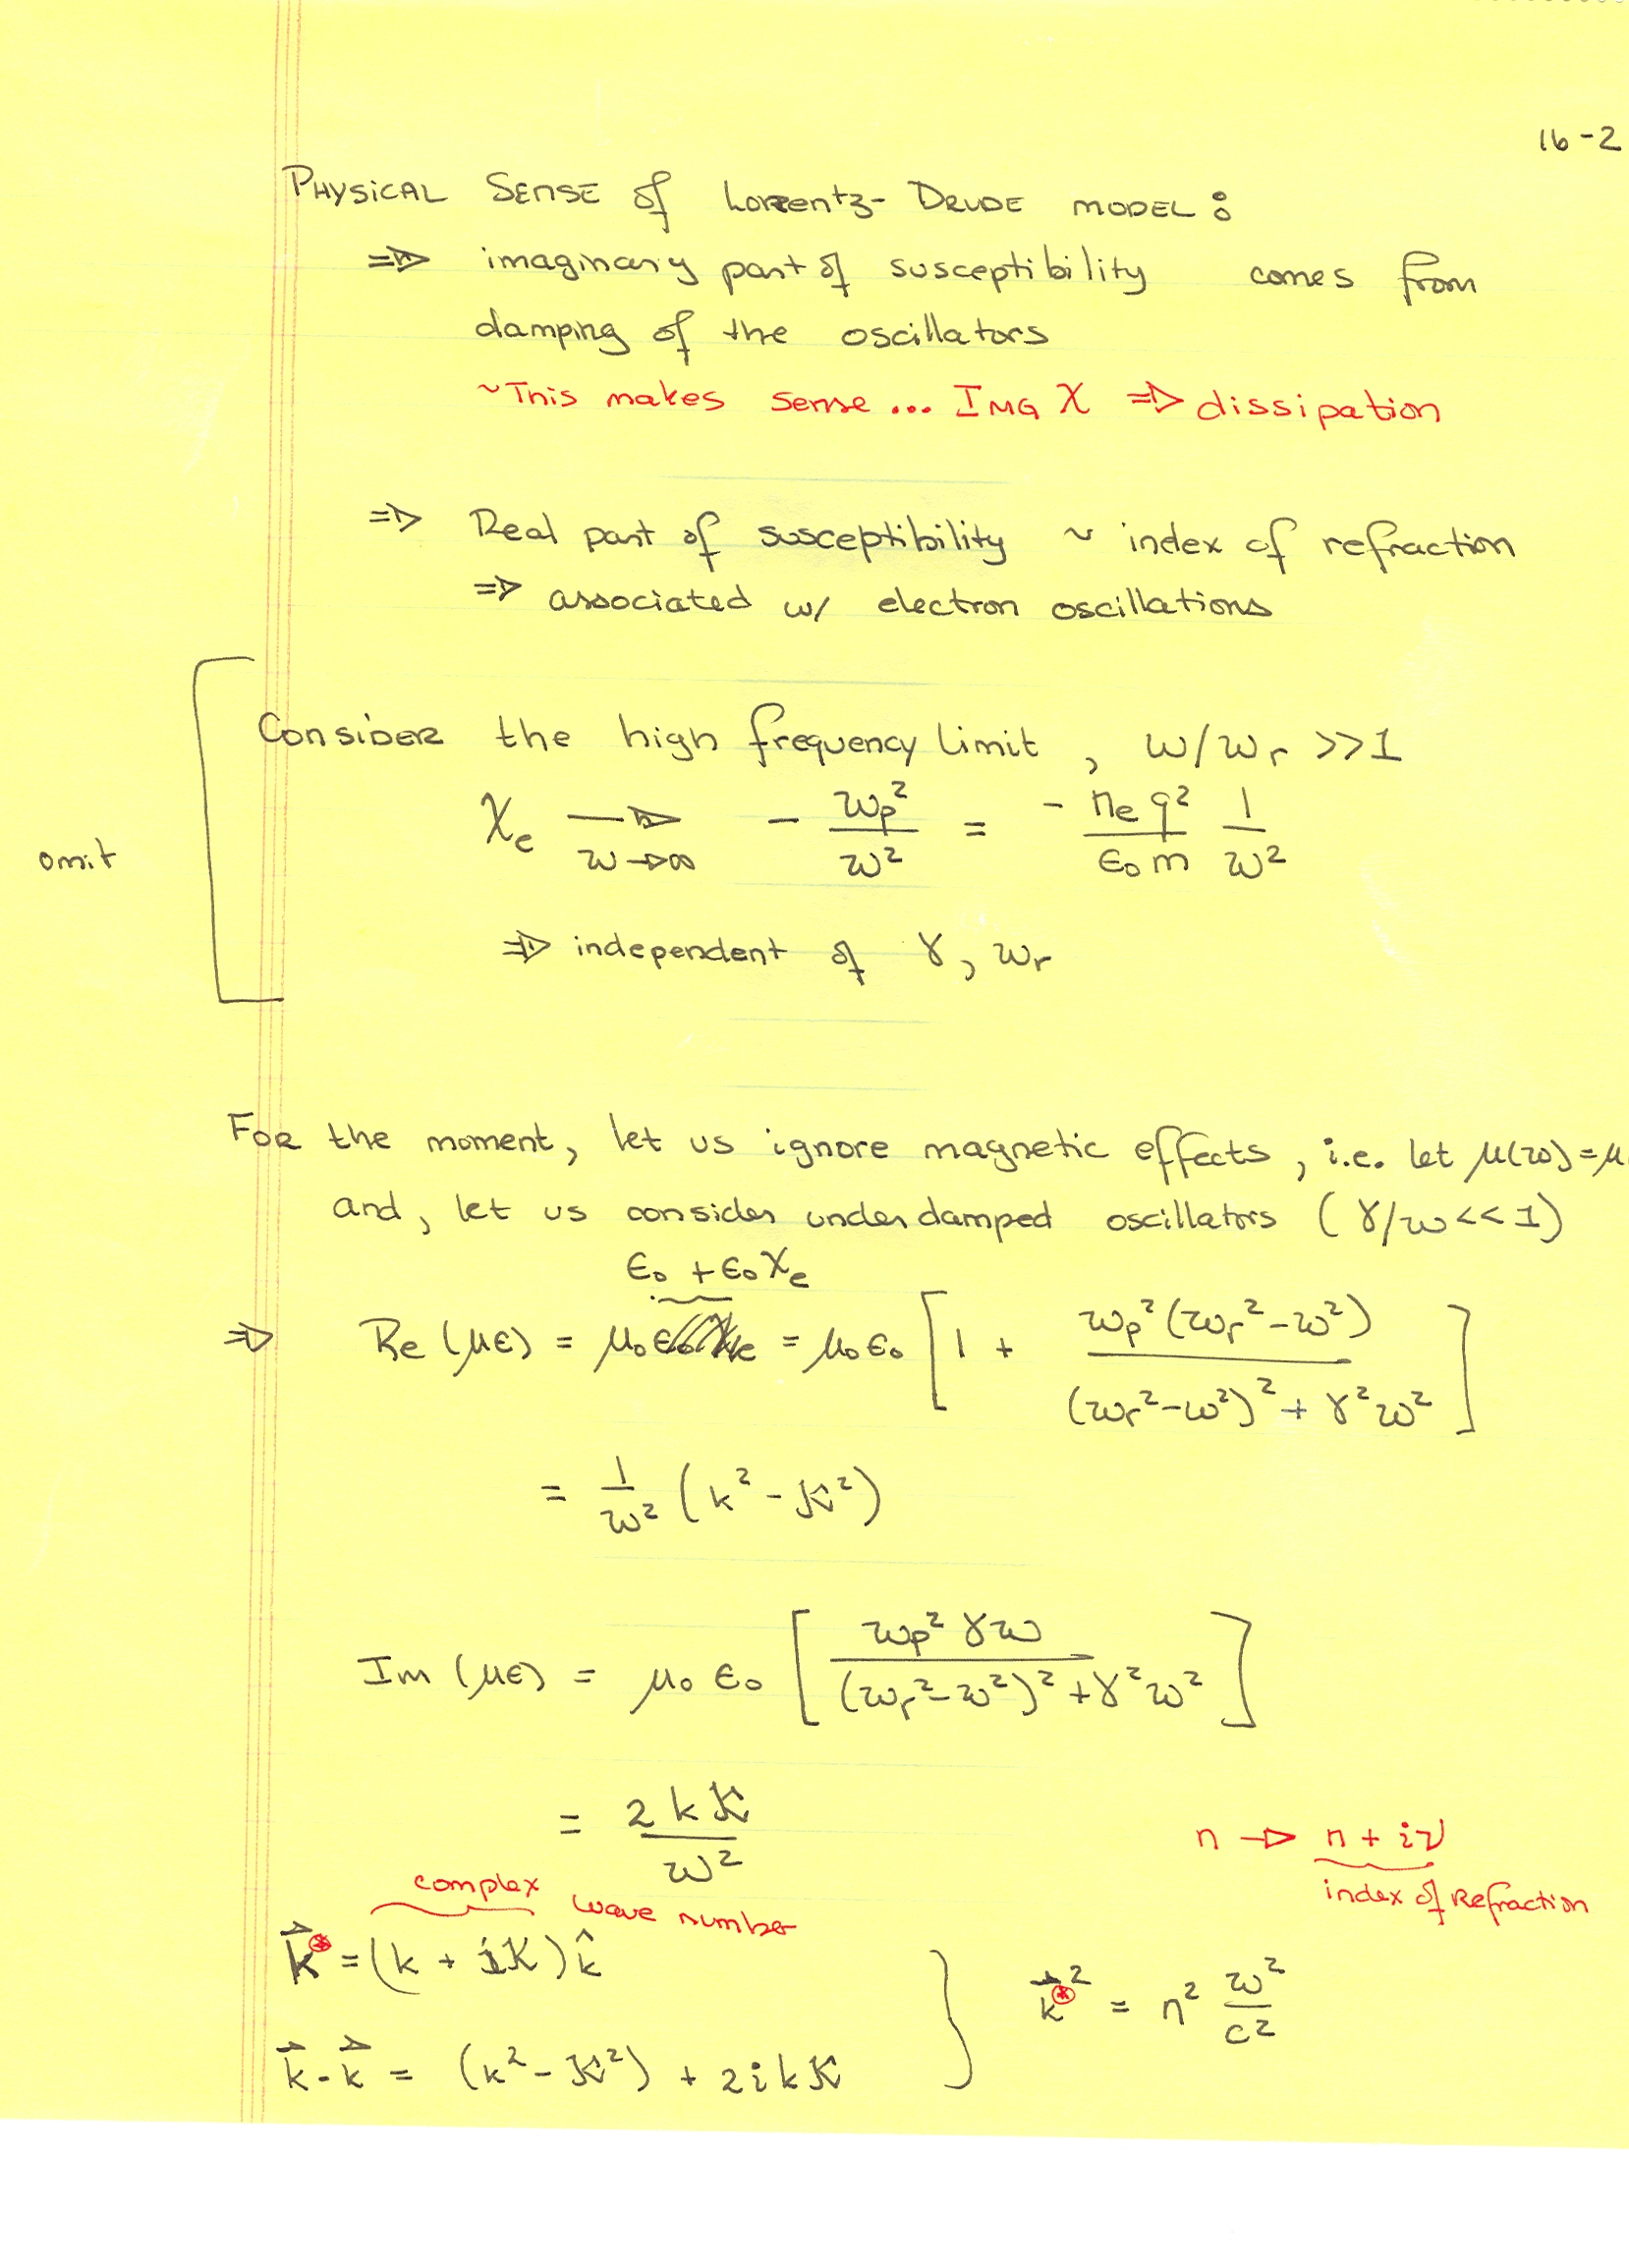 16-2
PHYSICAL SENSE of Lorentz-DRUDE MODEL:
⇒ imaginary part of susceptibility comes from
damping of the oscillators
~This makes sense... IMG χ ⇒ dissipation
⇒ Real part of susceptibility ~ index of refraction
⇒ associated w/ electron oscillations
CONSIDER the high frequency limit, ω/ωr >>1
χe → (ω→∞) - ωp²/ω² = - ne q²/(ε0 m) 1/ω²
omit
⇒ independent of γ, ωr
FOR the moment, let us ignore magnetic effects, i.e. let μ(ω)=μ
and, let us consider underdamped oscillators (γ/ω<<1)
ε0 + ε0χe
⇒ Re (με) = μ0 = μ0ε0 [1 + ωp²(ωr²-ω²) / ((ωr²-ω²)² + γ²ω²)]
= 1/ω² (k² - K²)
Im (με) = μ0 ε0 [ωp² γω / ((ωr²-ω²)² + γ²ω²)]
= 2 k K / ω²
n → n + iν
index of Refraction
complex wave number
k⃗* = (k + iK) k̂
k⃗*² = n² ω²/c²
k⃗·k⃗ = (k² - K²) + 2ikK